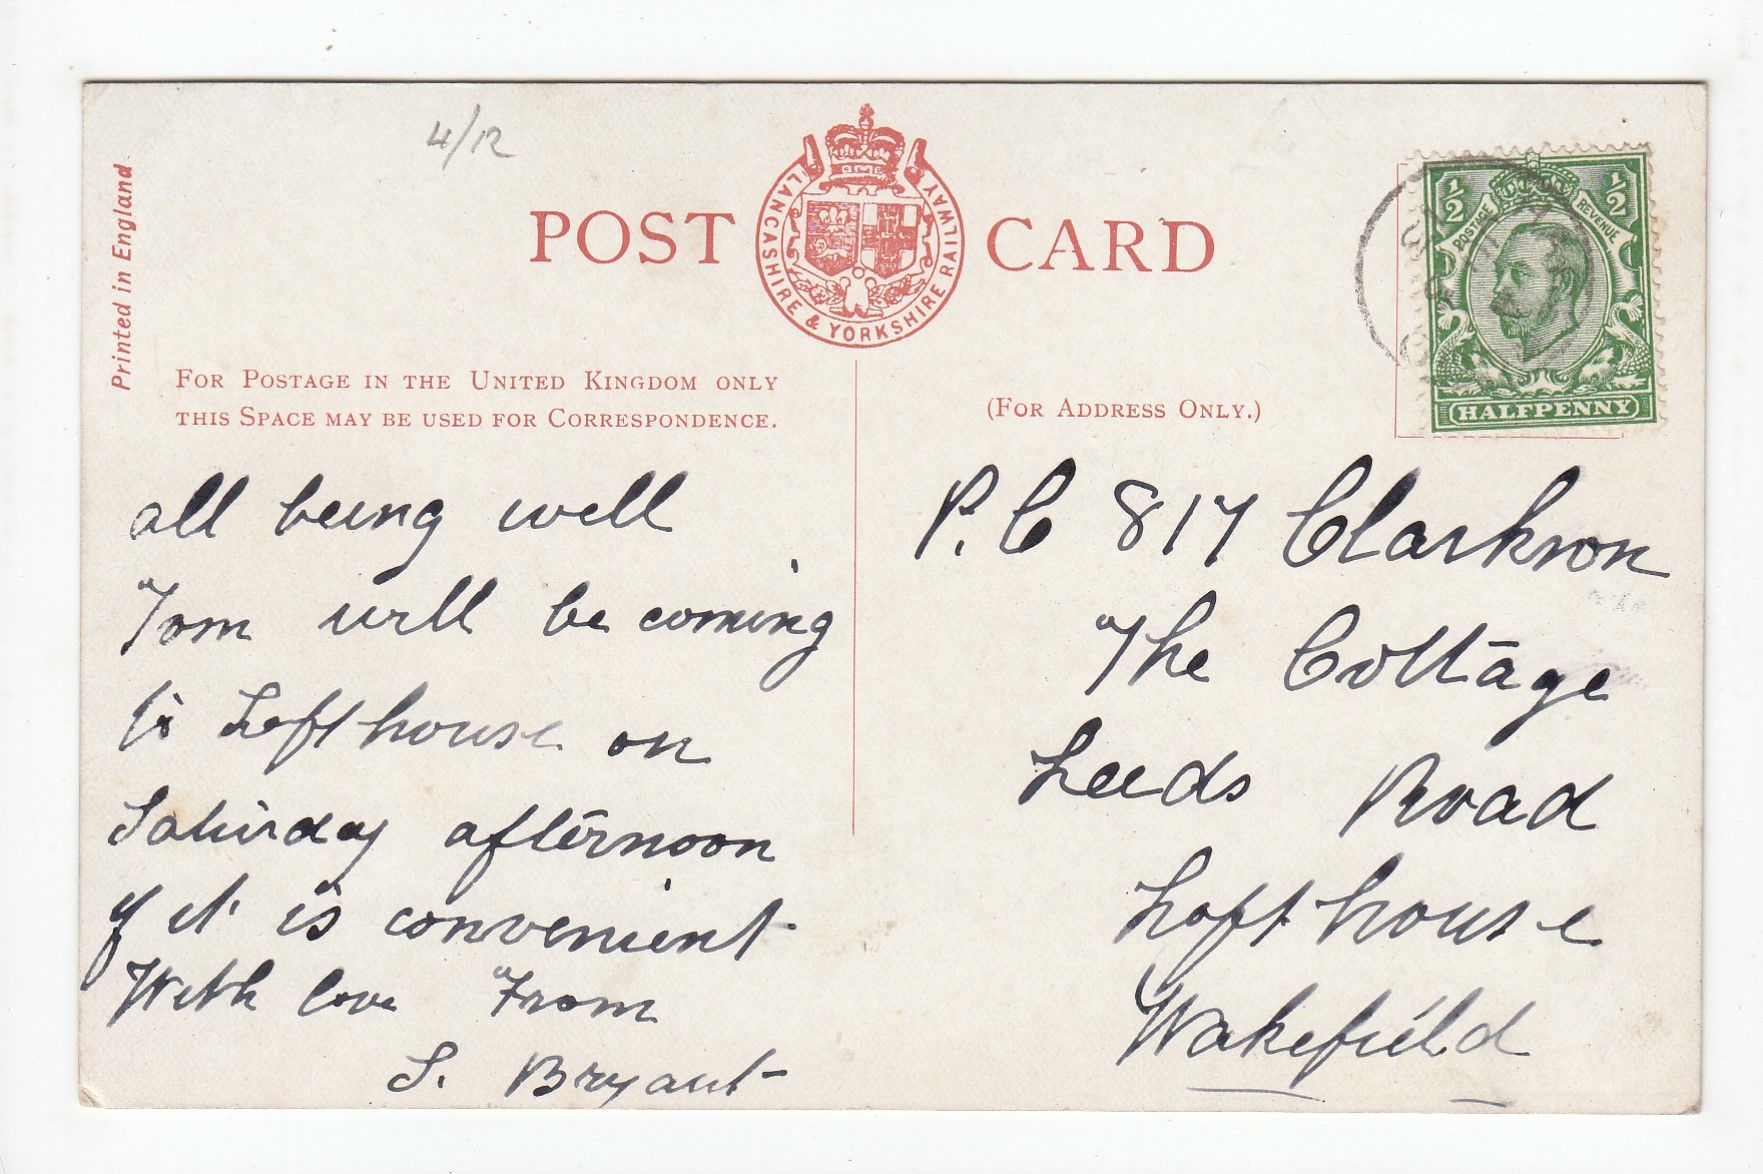 4/12
Printed in England
POST CARD
LANCASHIRE & YORKSHIRE RAILWAY
½ ½
POSTAGE REVENUE
HALFPENNY
FOR POSTAGE IN THE UNITED KINGDOM ONLY
THIS SPACE MAY BE USED FOR CORRESPONDENCE.
(FOR ADDRESS ONLY.)
all being well
Tom will be coming
to Lofthouse on
Saturday afternoon
if it is convenient
With love From
S. Bryant
P.C 817 Clarkson
The Cottage
Leeds Road
Lofthouse
Wakefield